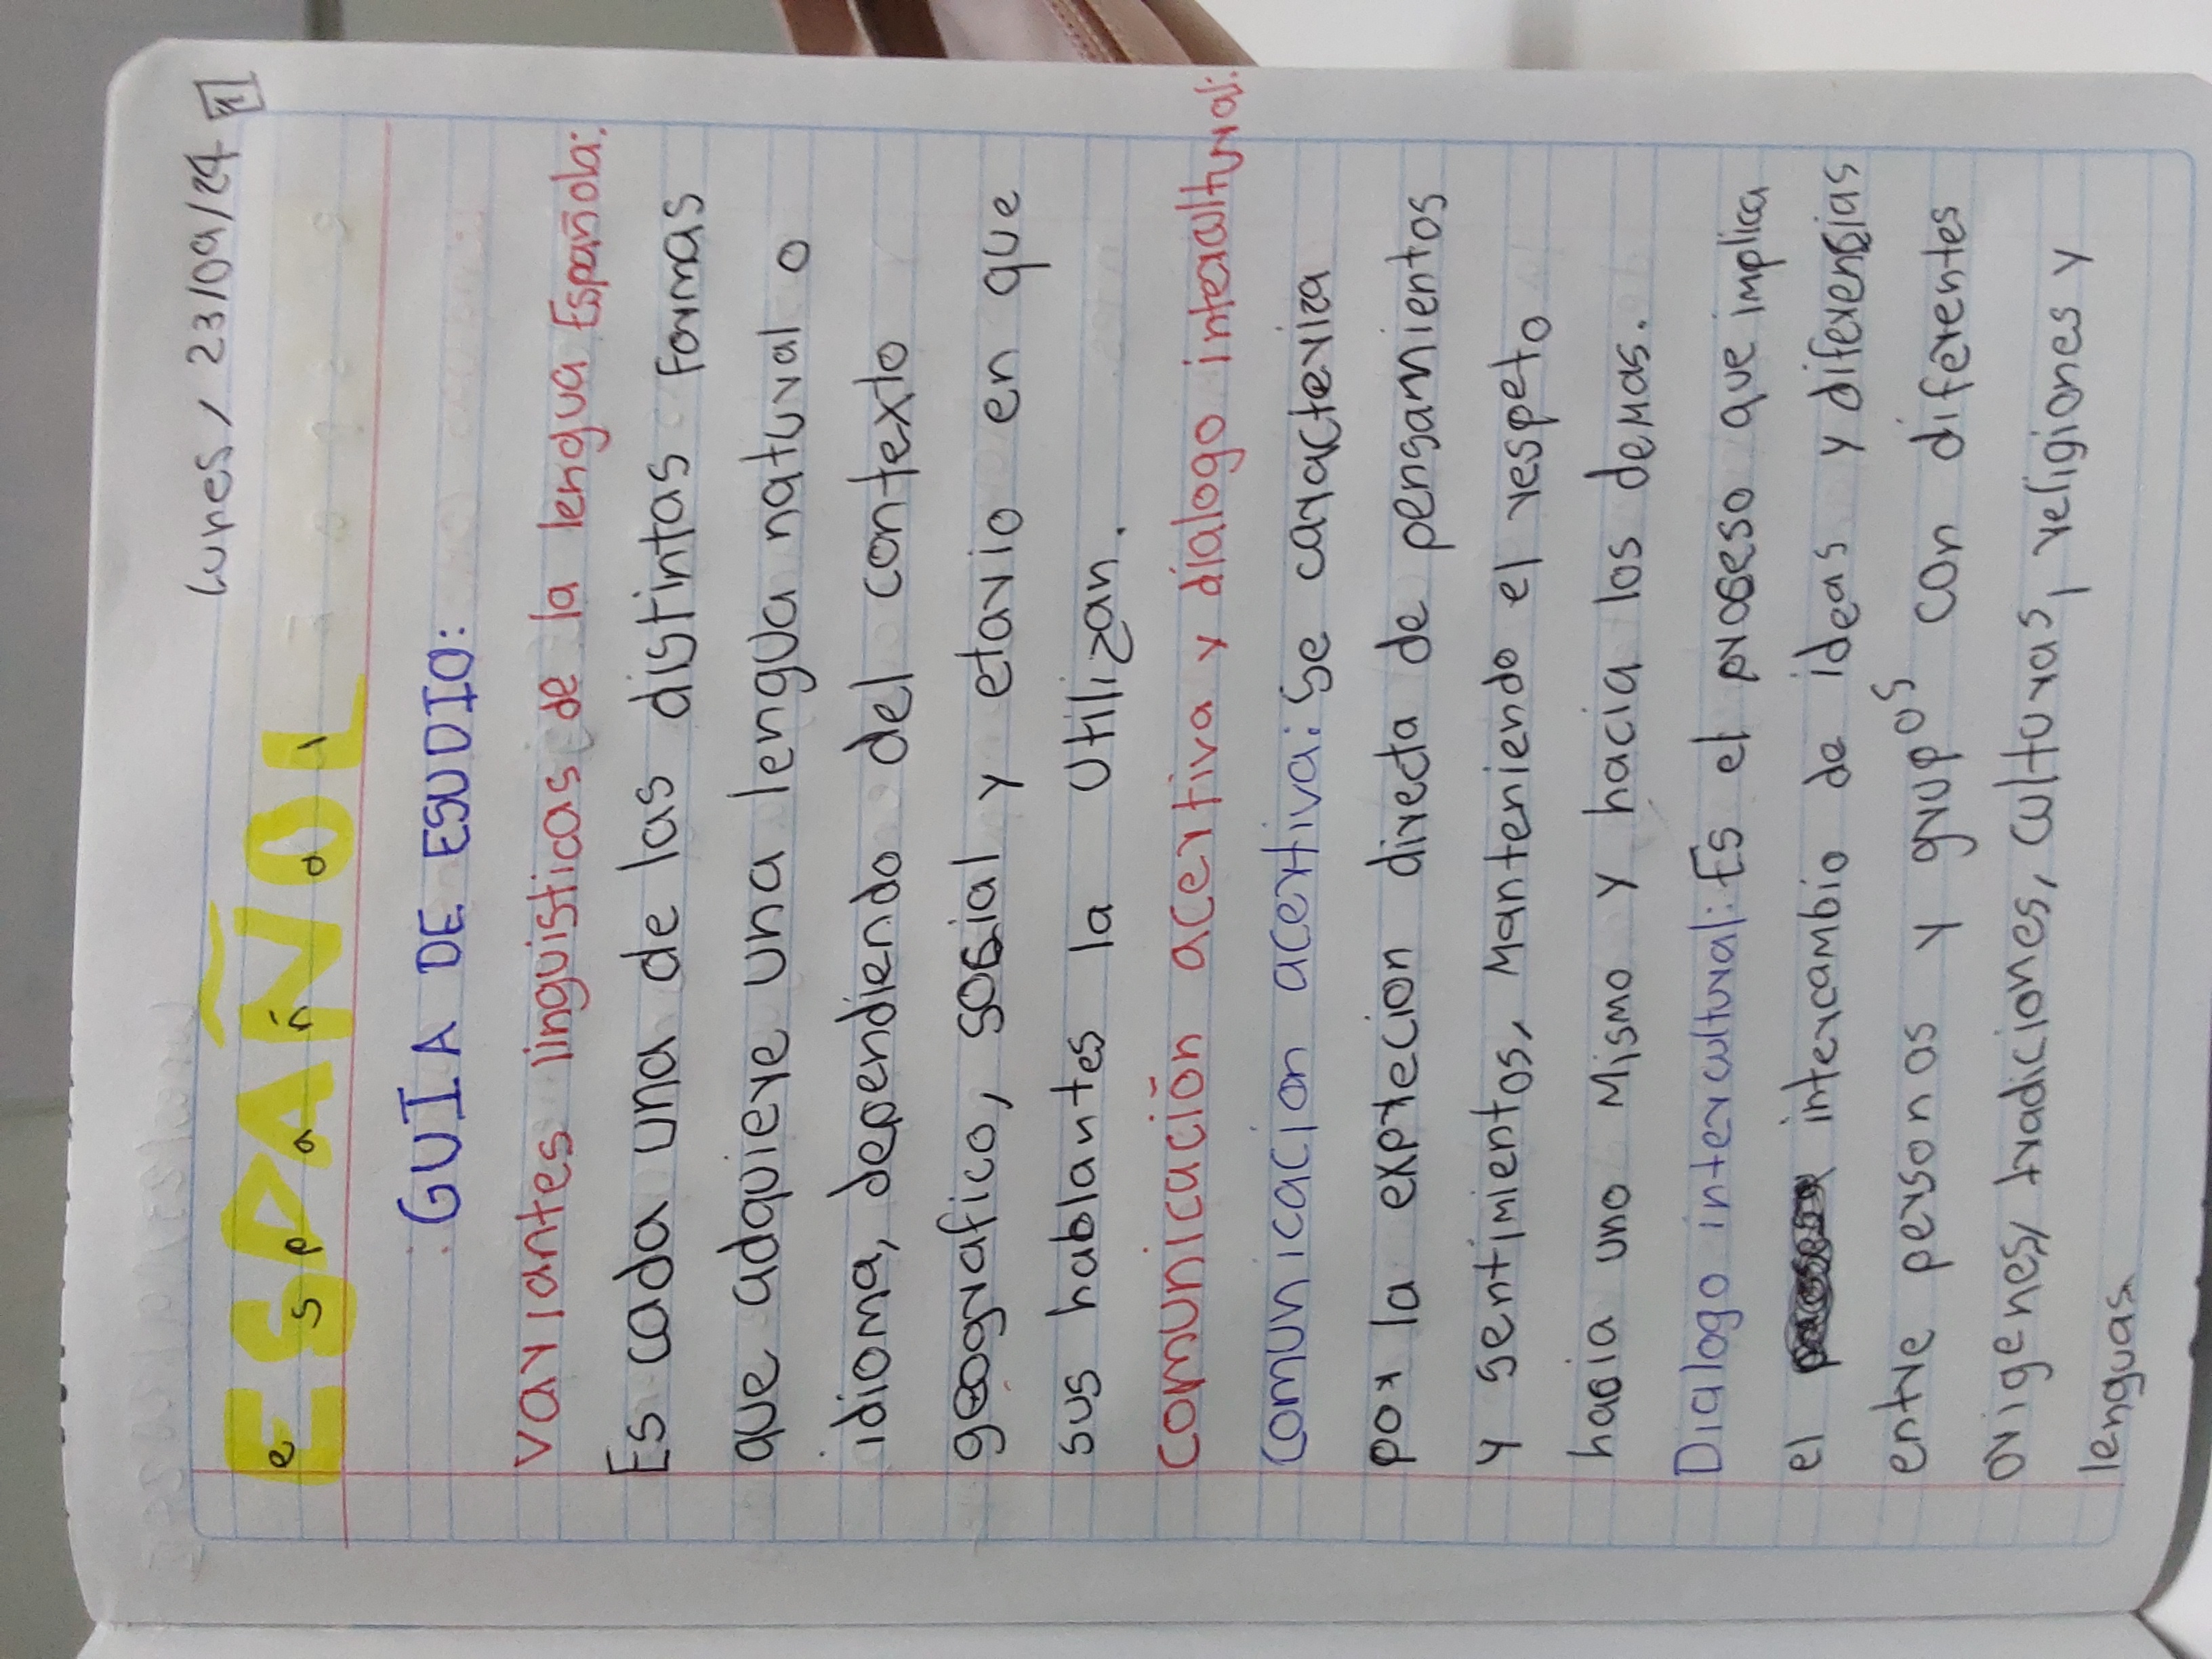 Lunes, 23/09/24
ESPAÑOL
e s p a ñ o l
GUIA DE ESUDIO:
Variantes linguisticas de la lengua Española:
Es cada una de las distintas formas
que adquiere una lengua natural o
idioma, dependiendo del contexto
geografico, social y etario en que
sus hablantes la utilizan.
Comunicación acertiva y dialogo inteacultural:
Comunicacion acertiva: Se caracteriza
por la exprecion directa de pensamientos
y sentimientos, Manteniendo el respeto
hacia uno Mismo y hacia los demas.
Dialogo intercultural: Es el proseso que implica
el intercambio de ideas y diferensias
entre personos y grupos con diferentes
origenes, tradiciones, culturas, religiones y
lenguas